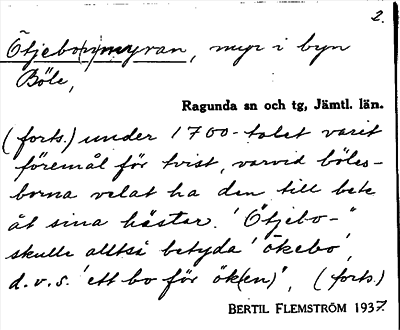 2.
Ötjebo(n)myran, myr i byn
Böle,
Ragunda sn och tg, Jämtl. län.
(forts.) under 1700-talet varit
föremål för tvist, varvid böles-
borna velat ha den till bete
åt sina hästar. "Ötjebo-"
skulle alltså betyda 'ökebo',
d.v.s. 'ett bo för ök(en)', (forts.)
BERTIL FLEMSTRÖM 1937.